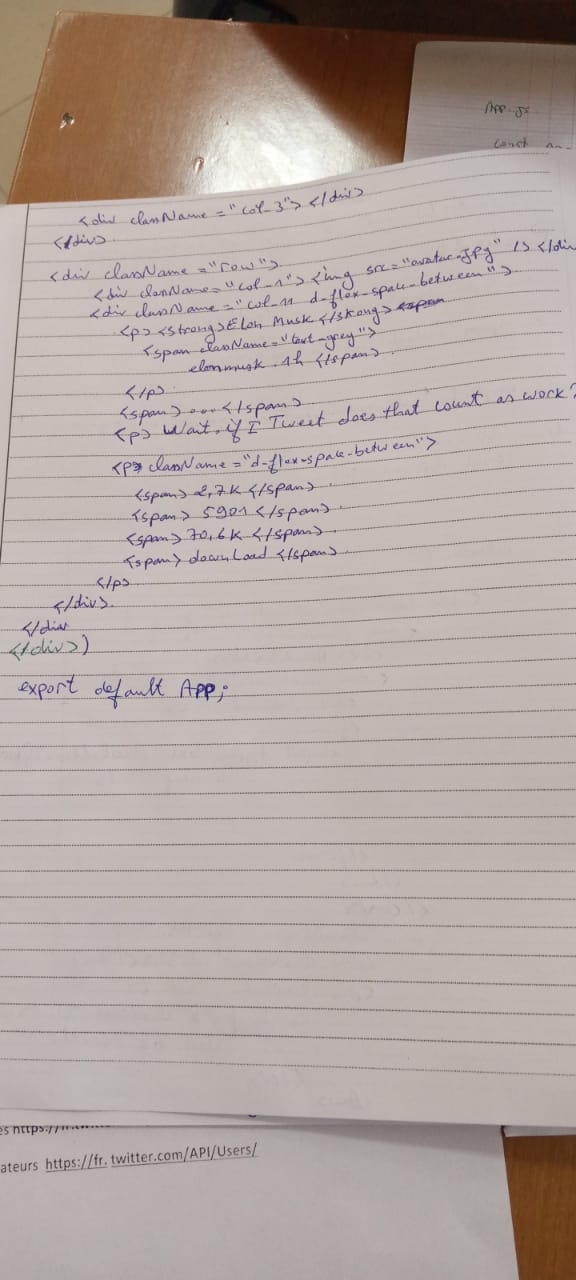 App.js
const
<div className="col-3"> </div>
</div>
<div className="row">
<div className="col-1"> <img src="avatar.jpg" /> </div
<div className="col-11 d-flex-space-between">
<p> <strong> Elon Musk </strong> <span
<span className="text-grey">
elonmusk . 1h </span>
</p>
<span> ... </span>
<p> Wait, if I Tweet does that count as work?
<p className="d-flex-space-between">
<span> 2,7K </span>
<span> 5901 </span>
<span> 70,6K </span>
<span> download </span>
</p>
</div>
</div
</div>)
export default App;
ateurs https://fr.twitter.com/API/Users/